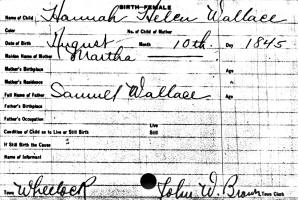 BIRTH-FEMALE
Name of Child Hannah Helen Wallace
Color No. of Child of Mother
Date of Birth August Month 10th Day 1845
Maiden Name of Mother Martha
Mother's Birthplace Age
Mother's Residence
Full Name of Father Samuel Wallace Age
Father's Birthplace
Father's Occupation
Live
Condition of Child as to Live or Still Birth Still
If Still Birth the Cause
Name of Informant
Town Wheelock John W. Brown, Town Clerk